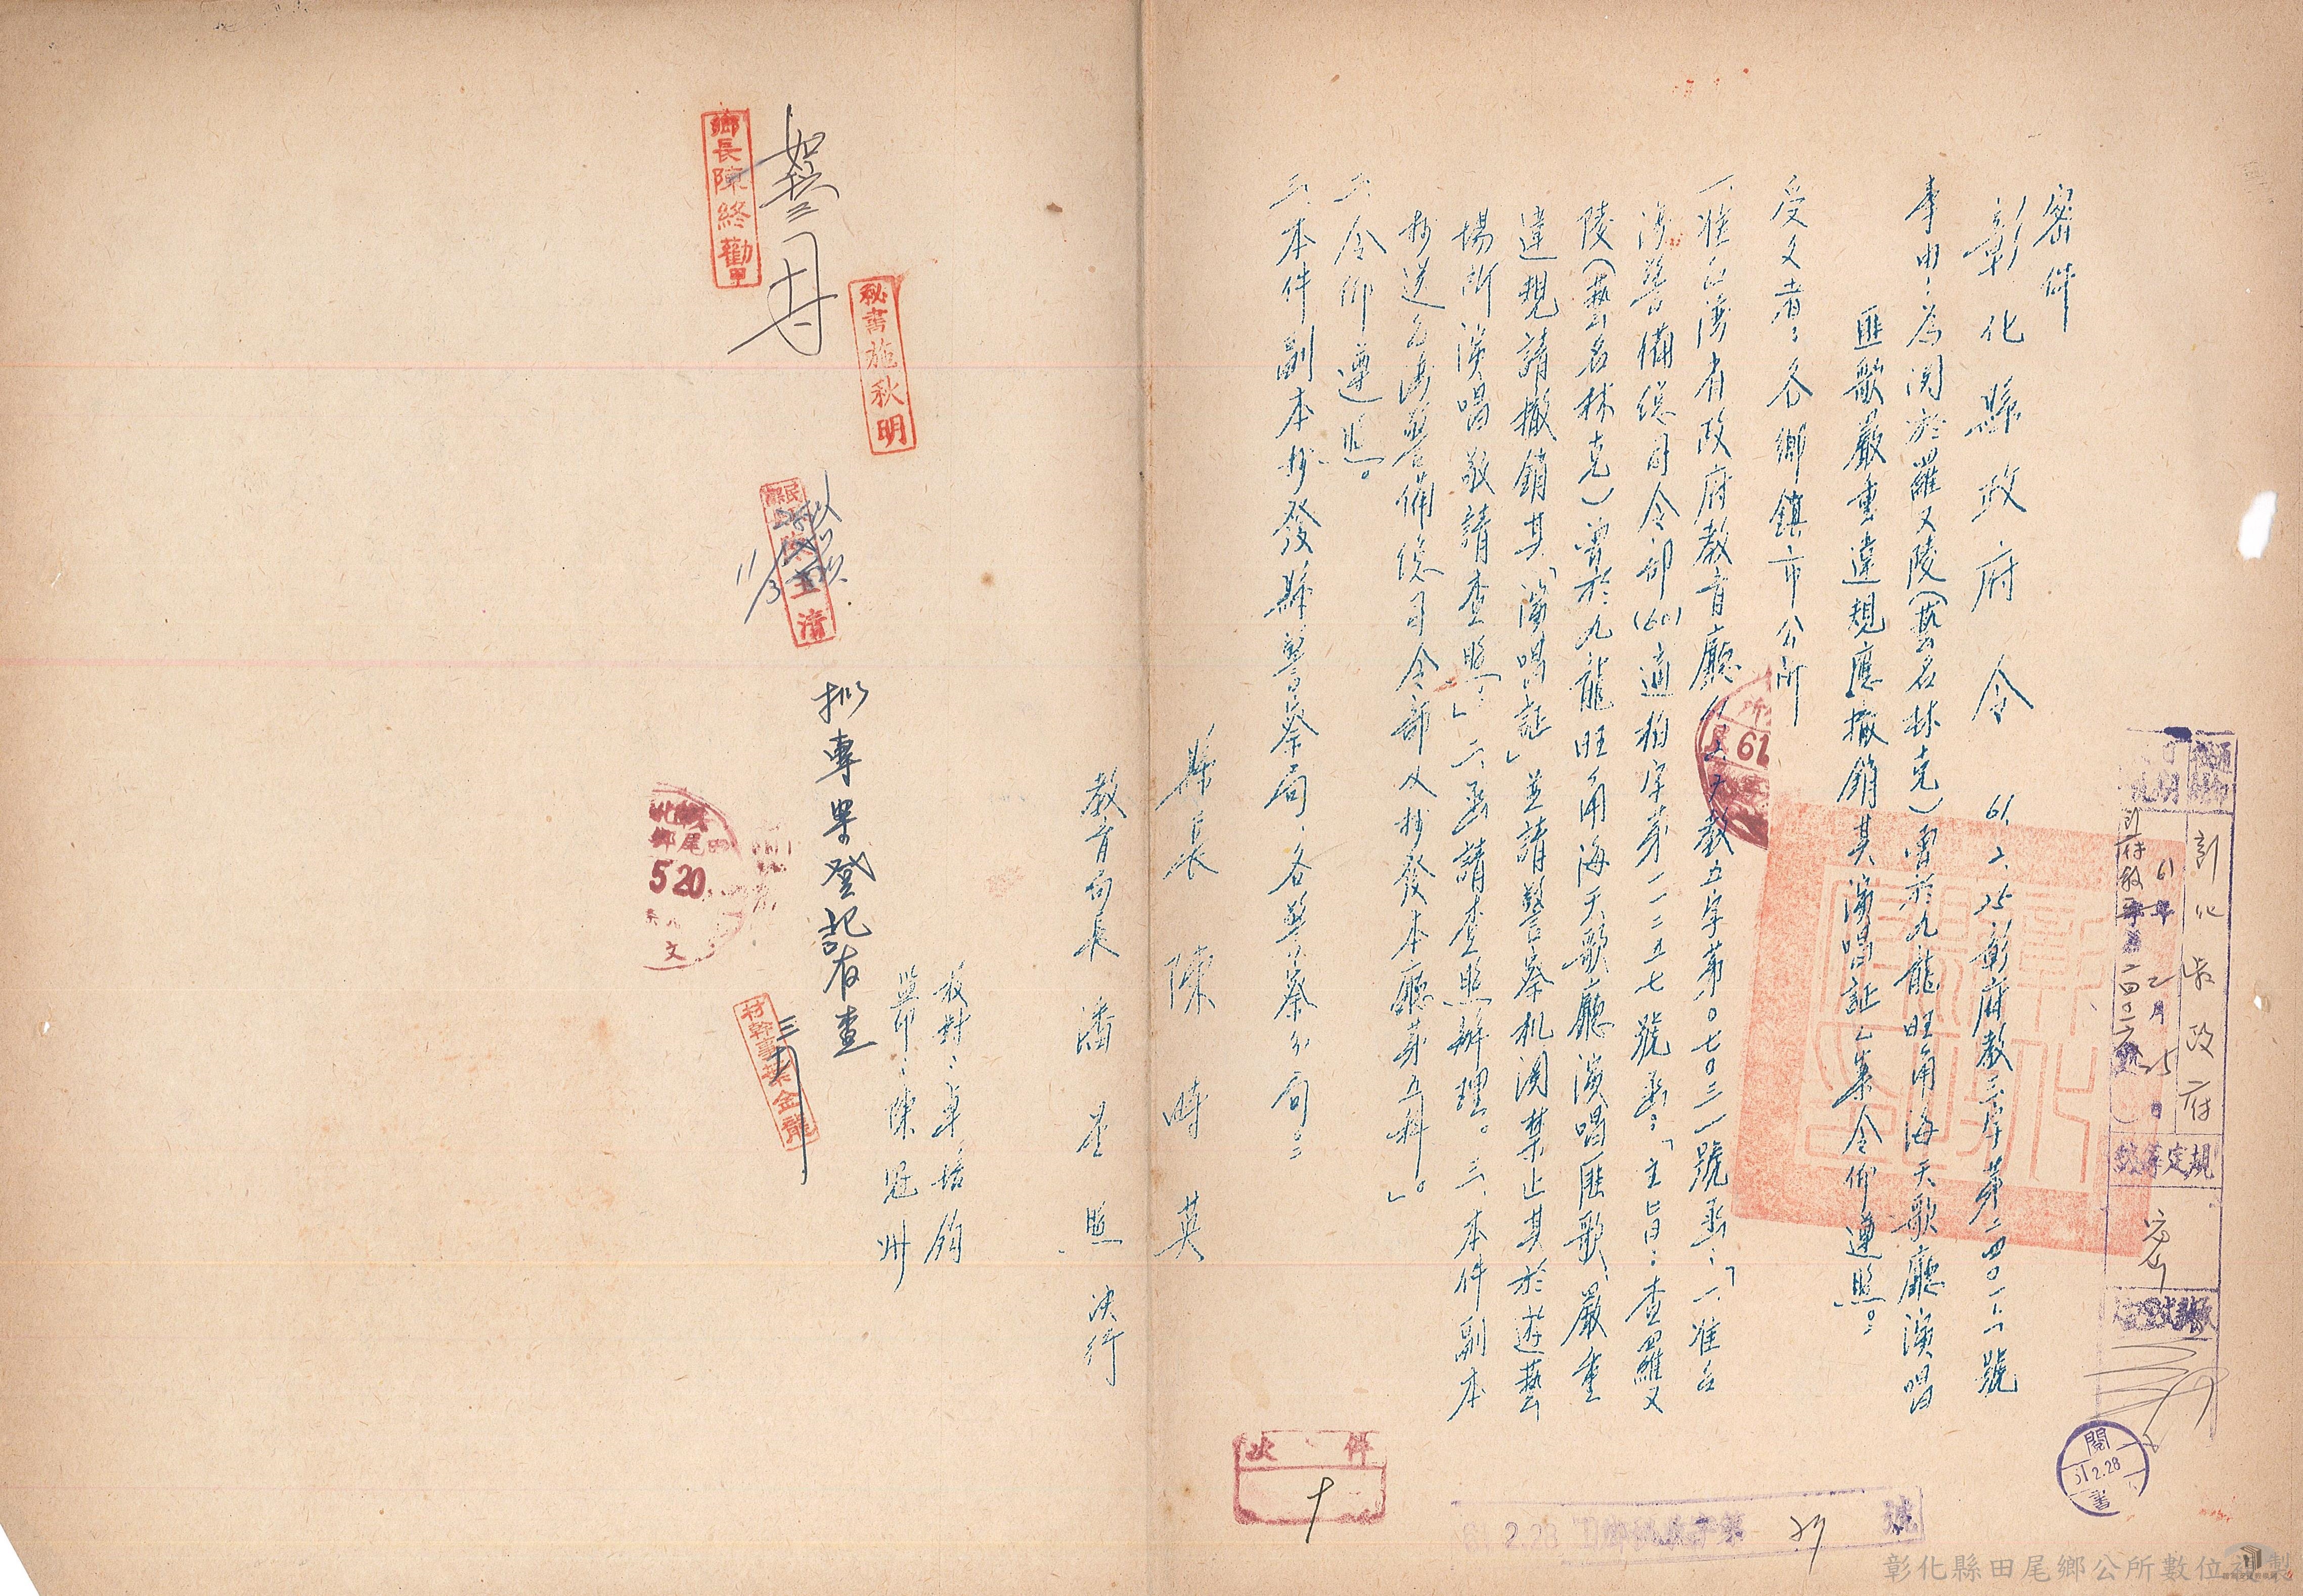 密件
彰化縣政府令 61.2.25彰府教三字第二四〇一六號
事由：為関於羅文陵（藝名林克）曾於九龍旺角海天歌廳演唱
匪歌嚴重違規應撤銷其演唱証乙案令仰遵照。
受文者：各鄉鎮市公所
一、准台湾省政府教育廳61.2.教五字第〇七〇三一號函：「一、准台
湾警備總司令部(60)適柏字第一二五七號函：「主旨：查羅文
陵（藝名林克）曾於九龍旺角海天歌廳演唱匪歌、嚴重
違規請撤銷其「演唱証」並請警察机関禁止其於遊藝
場所演唱敬請查照。」二、函請查照辦理。三、本件副本
抄送台湾警備總司令部及抄發本廳第五科」。
二、令仰遵照。
三、本件副本抄發縣警察局、各警察分局。
縣長 陳時英
教育局長 潘星照 決行
校對：卓培鈞
監印：陳冠州
拟專案登記存查
村幹事葉金龍
秘書施秋明
如擬
鄉長陳終勸
彰化縣政府
61年2月25日
密
閱
2.28
書
520
文
件
十
61.2.28
號
彰化縣田尾鄉公所數位複製